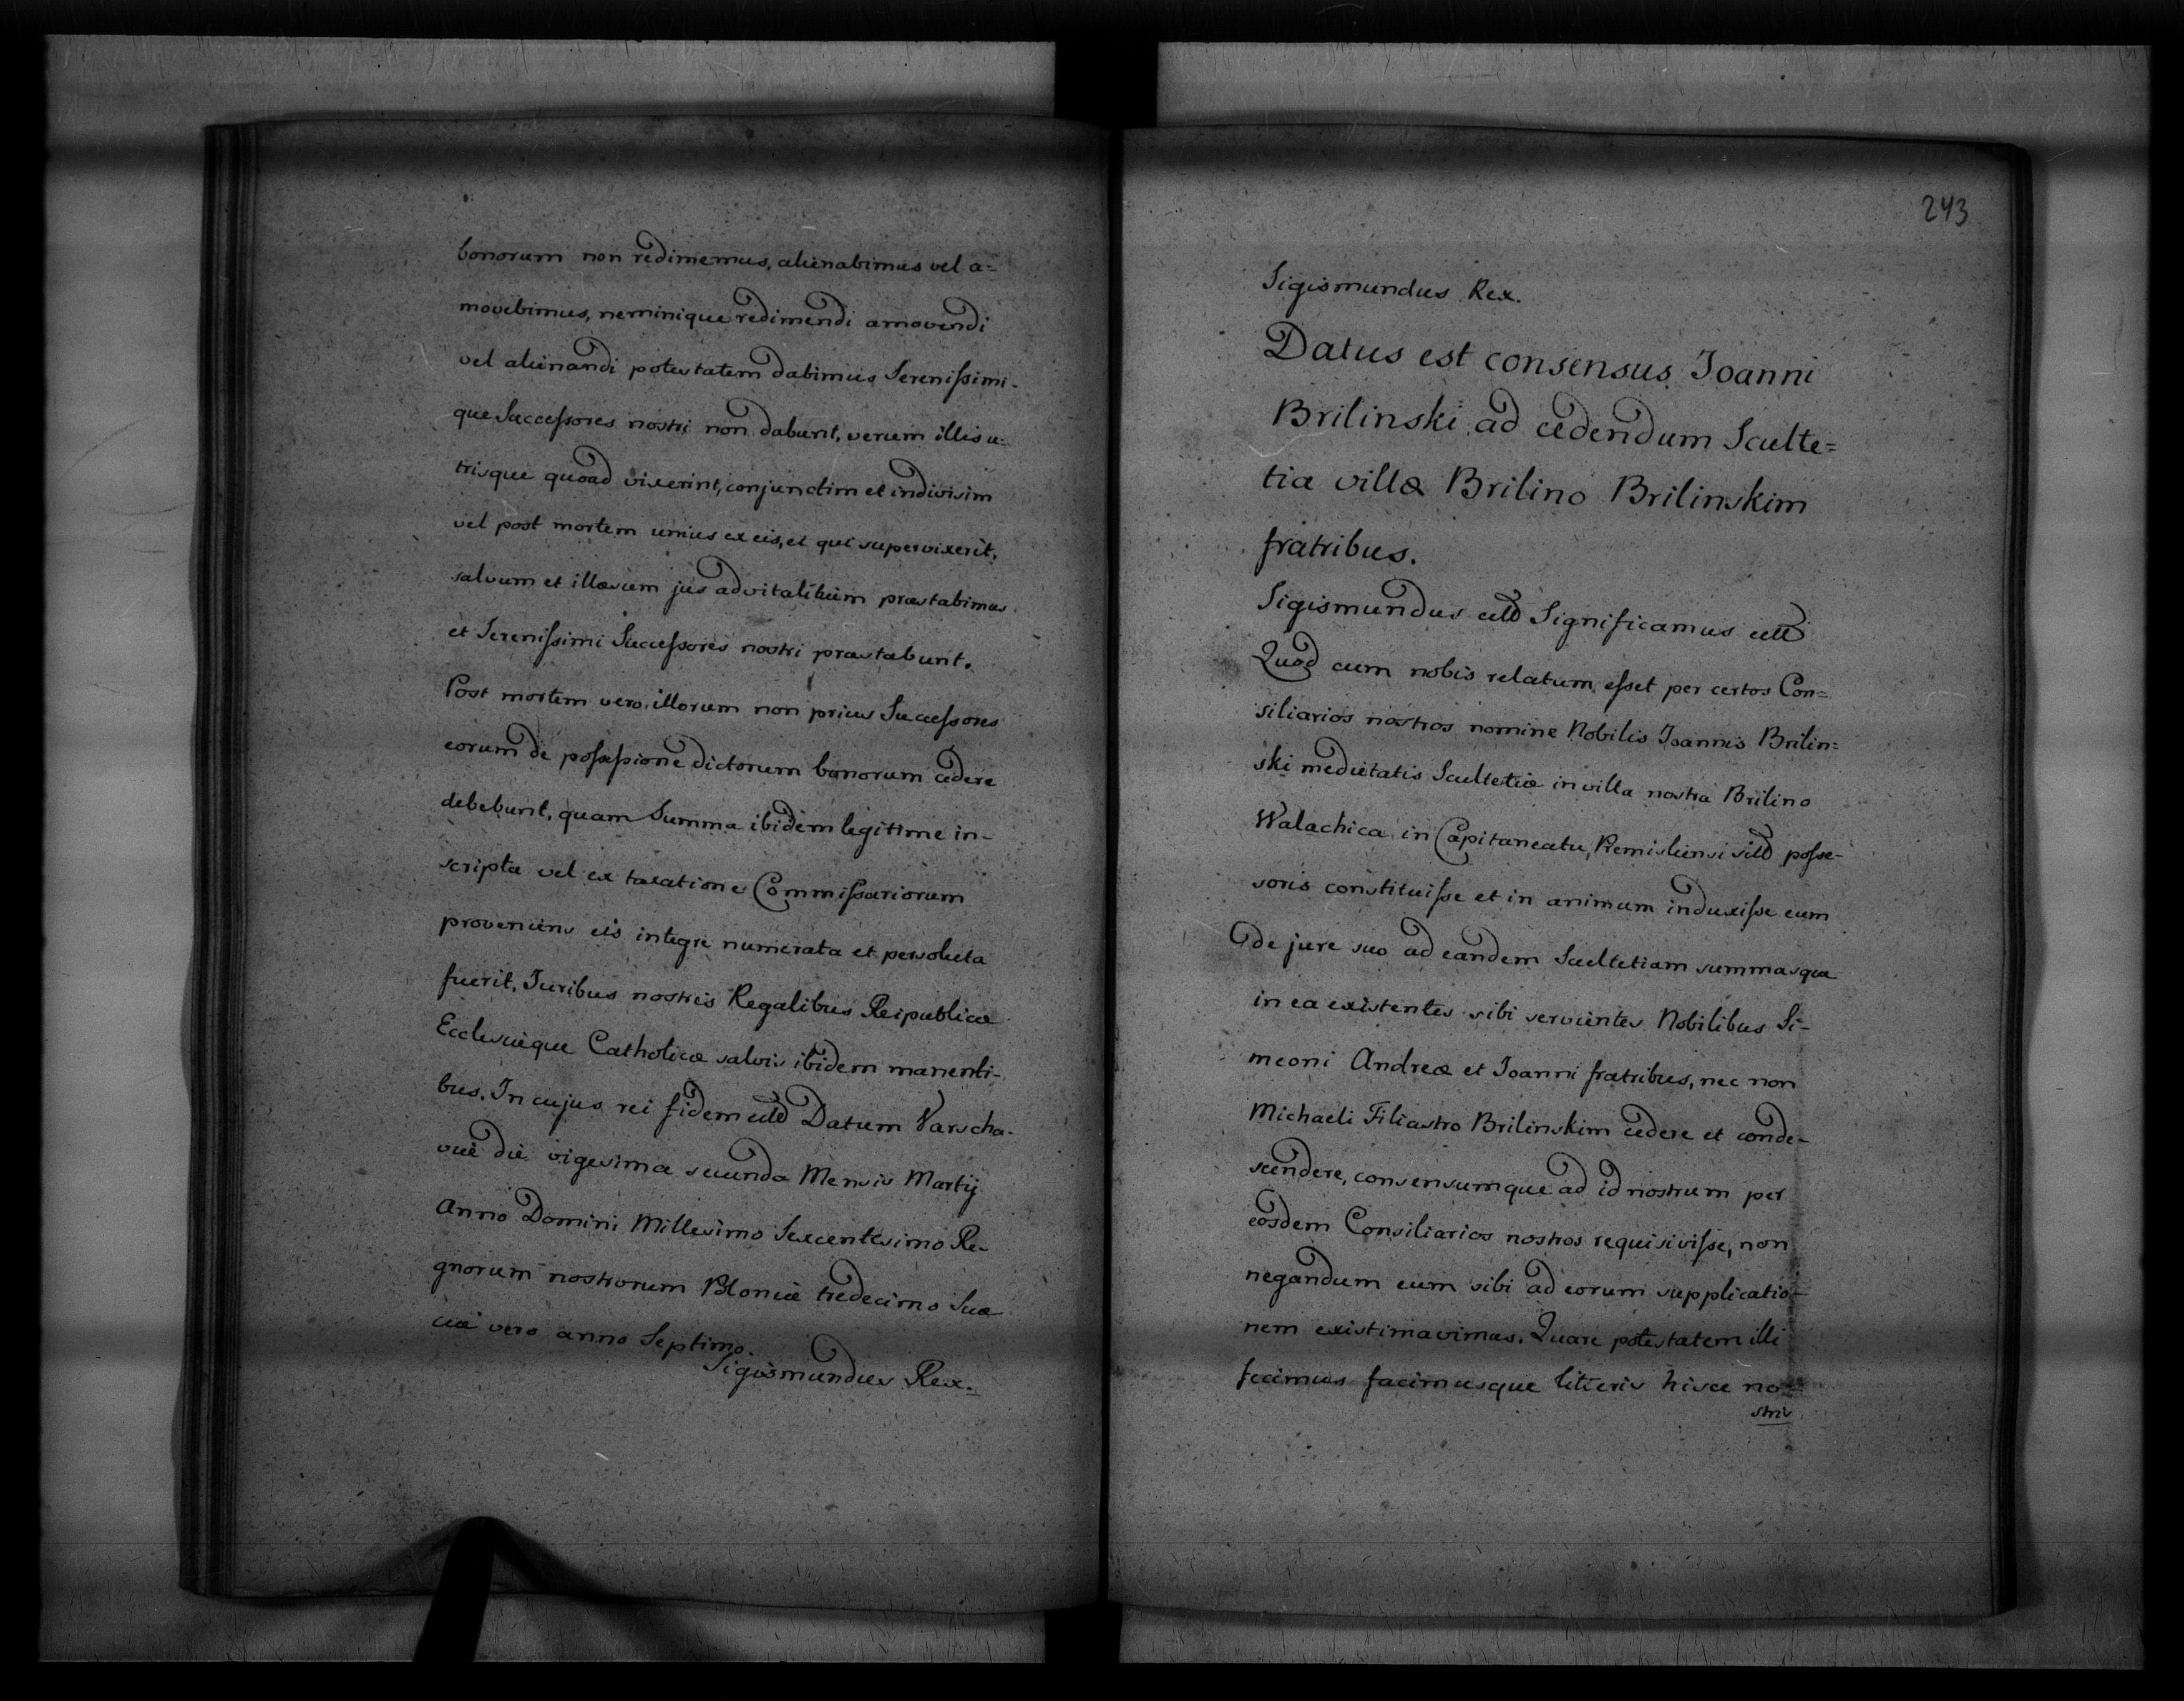 bonorum non redimemus, alienabimus vel a=
movebimus, neminique redimendi amovendi
vel alienandi potestatem dabimus Serenissimi-
que Successores nostri non dabunt, verum illis u=
trisque quoad vixerint, conjunctim et indivisim
vel post mortem unius ex eis, et qui supervixerit,
salvum et illæsum jus advitalitium præstabimus
et Serenissimi Successores nostri præstabunt.
Post mortem vero illorum non prius Successores
eorum de possessione dictorum bonorum cedere
debebunt, quam Summa ibidem legitime in-
scripta vel ex taxatione Commissariorum
proveniens eis integre numerata et persoluta
fuerit, Juribus nostris Regalibus Reipublicæ
Ecclesiæque Catholicæ salvis ibidem manenti-
bus. In cujus rei fidem Datum Varscha-
viæ die vigesima secunda Mensis Martij
Anno Domini Millesimo Sexcentesimo Re-
gnorum nostrorum Poloniæ tredecimo Sue
ciæ vero anno Septimo.
Sigismundus Rex.
243
Sigismundus Rex.
Datus est consensus Joanni
Brilinski ad cedendum Sculte=
tia villæ Brilino Brilinskim
fratribus.
Sigismundus Significamus
Quod cum nobis relatum esset per certos Con=
siliarios nostros nomine Nobilis Joannis Brilin=
ski medietatis Scultetiæ in villa nostra Brilino
Walachica in Capitaneatu Premisliensi posse-
soris constituisse et in animum induxisse eum
de jure suo ad eandem Scultetiam summasque
in ea existentes sibi servientes Nobilibus Si-
meoni Andreæ et Joanni fratribus, nec non
Michaeli Filiastro Brilinskim cedere et conde-
scendere, consensumque ad id nostrum per
eosdem Consiliarios nostros requisivisse, non
negandum eum sibi ad eorum supplicatio-
nem existimavimus. Quare potestatem illi
fecimus facimusque litteris hisce no-
stris